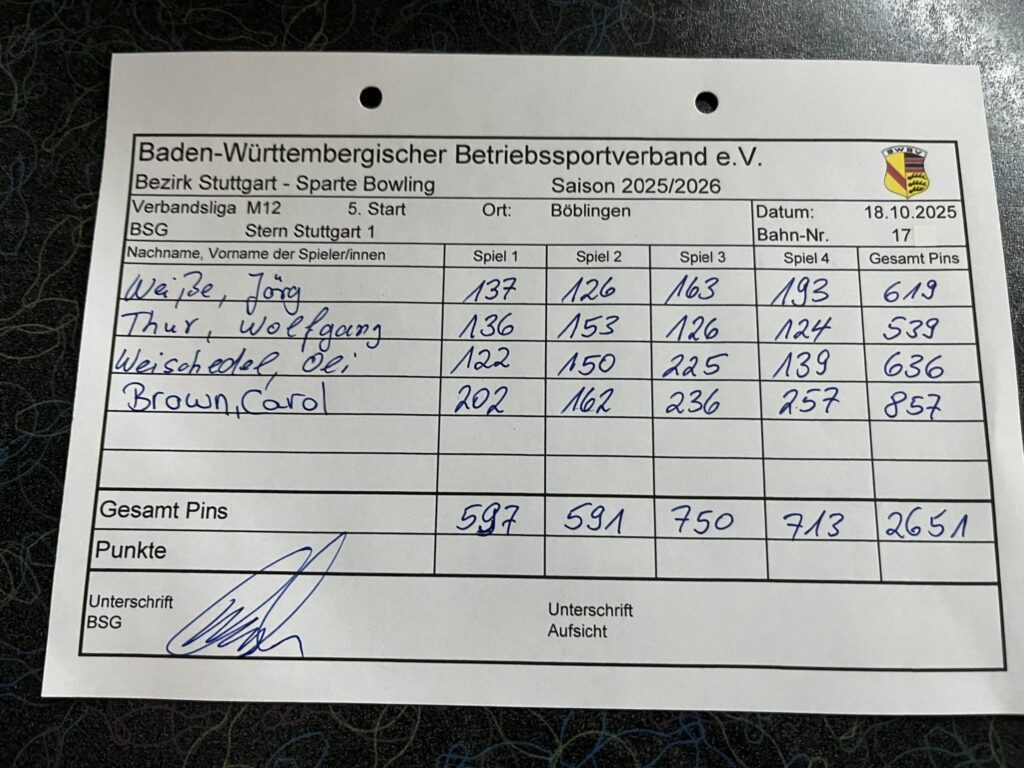 Baden-Württembergischer Betriebssportverband e.V.
BWBV
Bezirk Stuttgart - Sparte Bowling Saison 2025/2026
Verbandsliga M12 5. Start Ort: Böblingen Datum: 18.10.2025
BSG Stern Stuttgart 1 Bahn-Nr. 17
Nachname, Vorname der Spieler/innen Spiel 1 Spiel 2 Spiel 3 Spiel 4 Gesamt Pins
Weiße, Jörg 137 126 163 193 619
Thur, Wolfgang 136 153 126 124 539
Weischedel, Oli 122 150 225 139 636
Brown, Carol 202 162 236 257 857
Gesamt Pins 597 591 750 713 2651
Punkte
Unterschrift Unterschrift
BSG Aufsicht